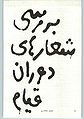 بررسی
شعارهای
دوران
قیام